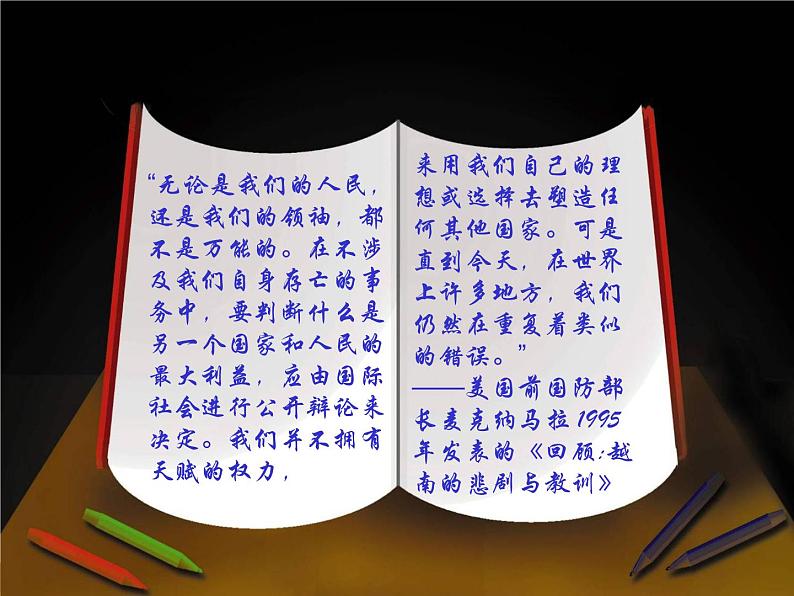 “无论是我们的人民，
还是我们的领袖，都
不是万能的。在不涉
及我们自身存亡的事
务中，要判断什么是
另一个国家和人民的
最大利益，应由国际
社会进行公开辩论来
决定。我们并不拥有
天赋的权力，
来用我们自己的理
想或选择去塑造任
何其他国家。可是
直到今天，在世界
上许多地方，我们
仍然在重复着类似
的错误。”
——美国前国防部
长麦克纳马拉1995
年发表的《回顾:越
南的悲剧与教训》